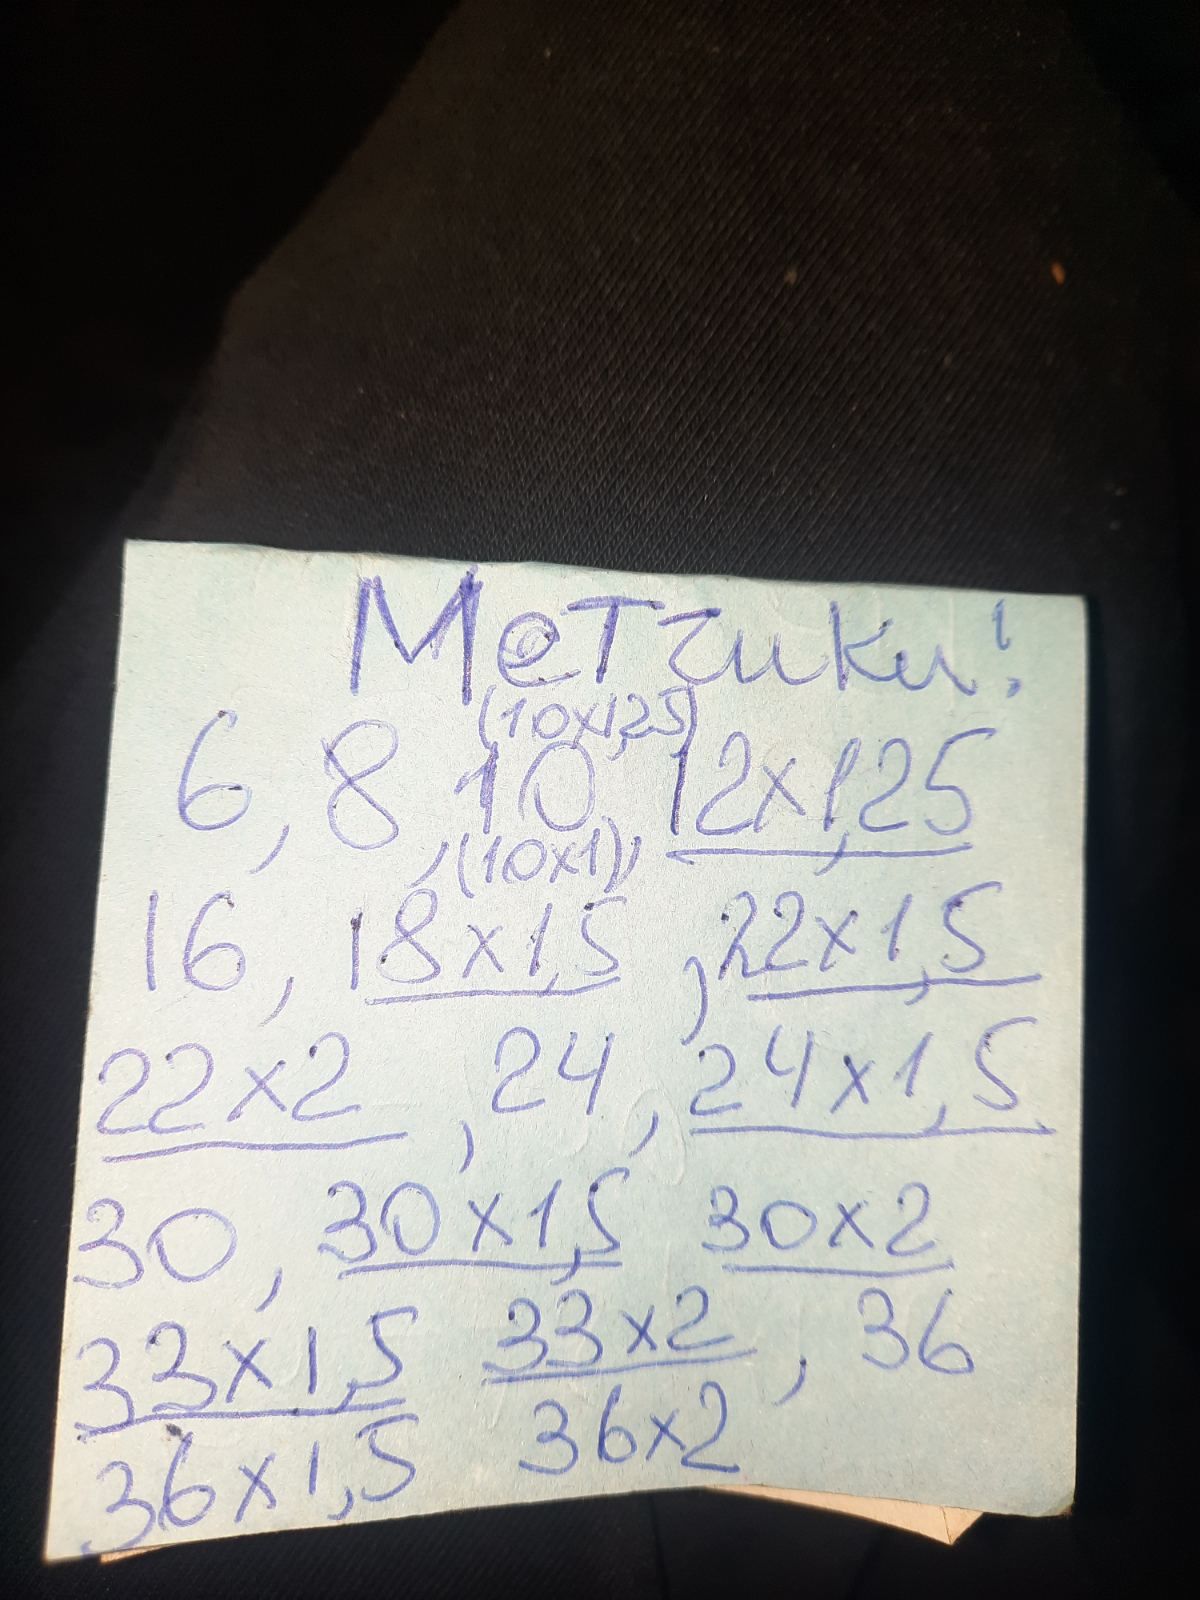 Метчики!
(10x1,25)
6, 8, 10, 12x1,25
(10x1)
16, 18x1,5, 22x1,5
22x2, 24, 24x1,5
30, 30x1,5 30x2
33x1,5 33x2, 36
36x1,5 36x2